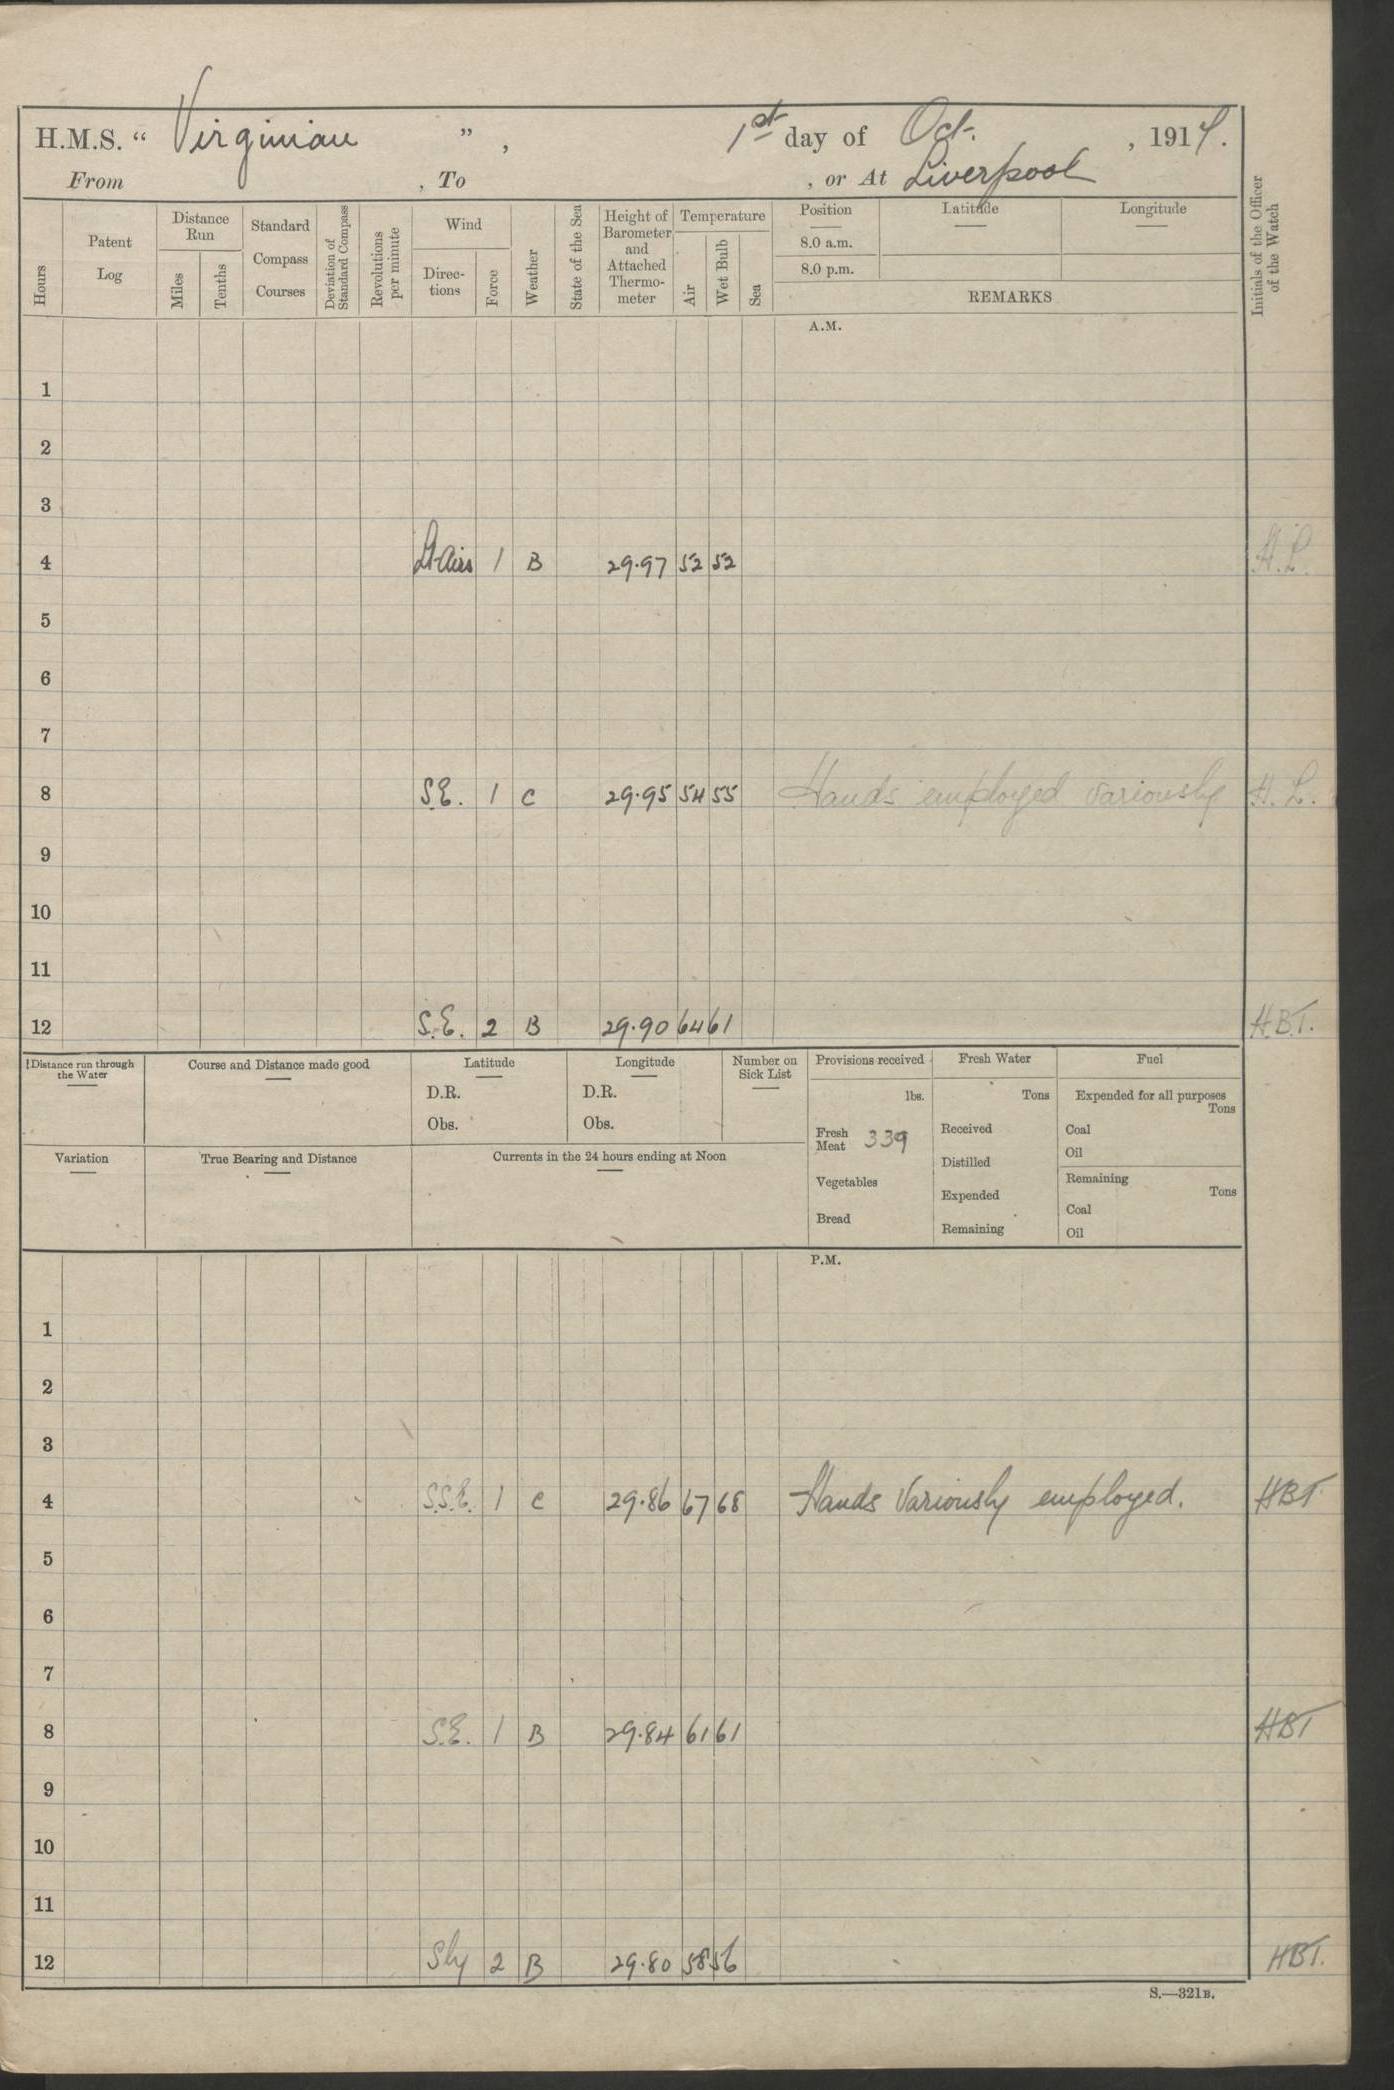 H.M.S. “ Virginian ” , 1st day of Oct. , 1914.
From , To , or At Liverpool
Hours
Patent Log
Distance Run
Miles
Tenths
Standard Compass Courses
Deviation of Standard Compass
Revolutions per minute
Wind
Direc-tions
Force
Weather
State of the Sea
Height of Barometer and Attached Thermo-meter
Temperature
Air
Wet Bulb
Sea
Position Latitude Longitude
8.0 a.m.
8.0 p.m.
REMARKS
Initials of the Officer of the Watch
A.M.
1
2
3
4 Lt Airs 1 B 29.97 52 52 H.L.
5
6
7
8 S.E. 1 C 29.95 54 55 Hands employed variously H.L.
9
10
11
12 S.E. 2 B 29.90 64 61 H.B.T.
Distance run through the Water
Course and Distance made good
Latitude
D.R.
Obs.
Longitude
D.R.
Obs.
Number on Sick List
Provisions received
lbs.
Fresh Meat 339
Vegetables
Bread
Fresh Water
Tons
Received
Distilled
Expended
Remaining
Fuel
Expended for all purposes
Tons
Coal
Oil
Remaining
Tons
Coal
Oil
Variation
True Bearing and Distance
Currents in the 24 hours ending at Noon
P.M.
1
2
3
4 S.S.E. 1 C 29.86 67 68 Hands Variously employed. HBT.
5
6
7
8 S.E. 1 B 29.84 61 61 HBT
9
10
11
12 Sly 2 B 29.80 58 56 HBT.
S.—321B.